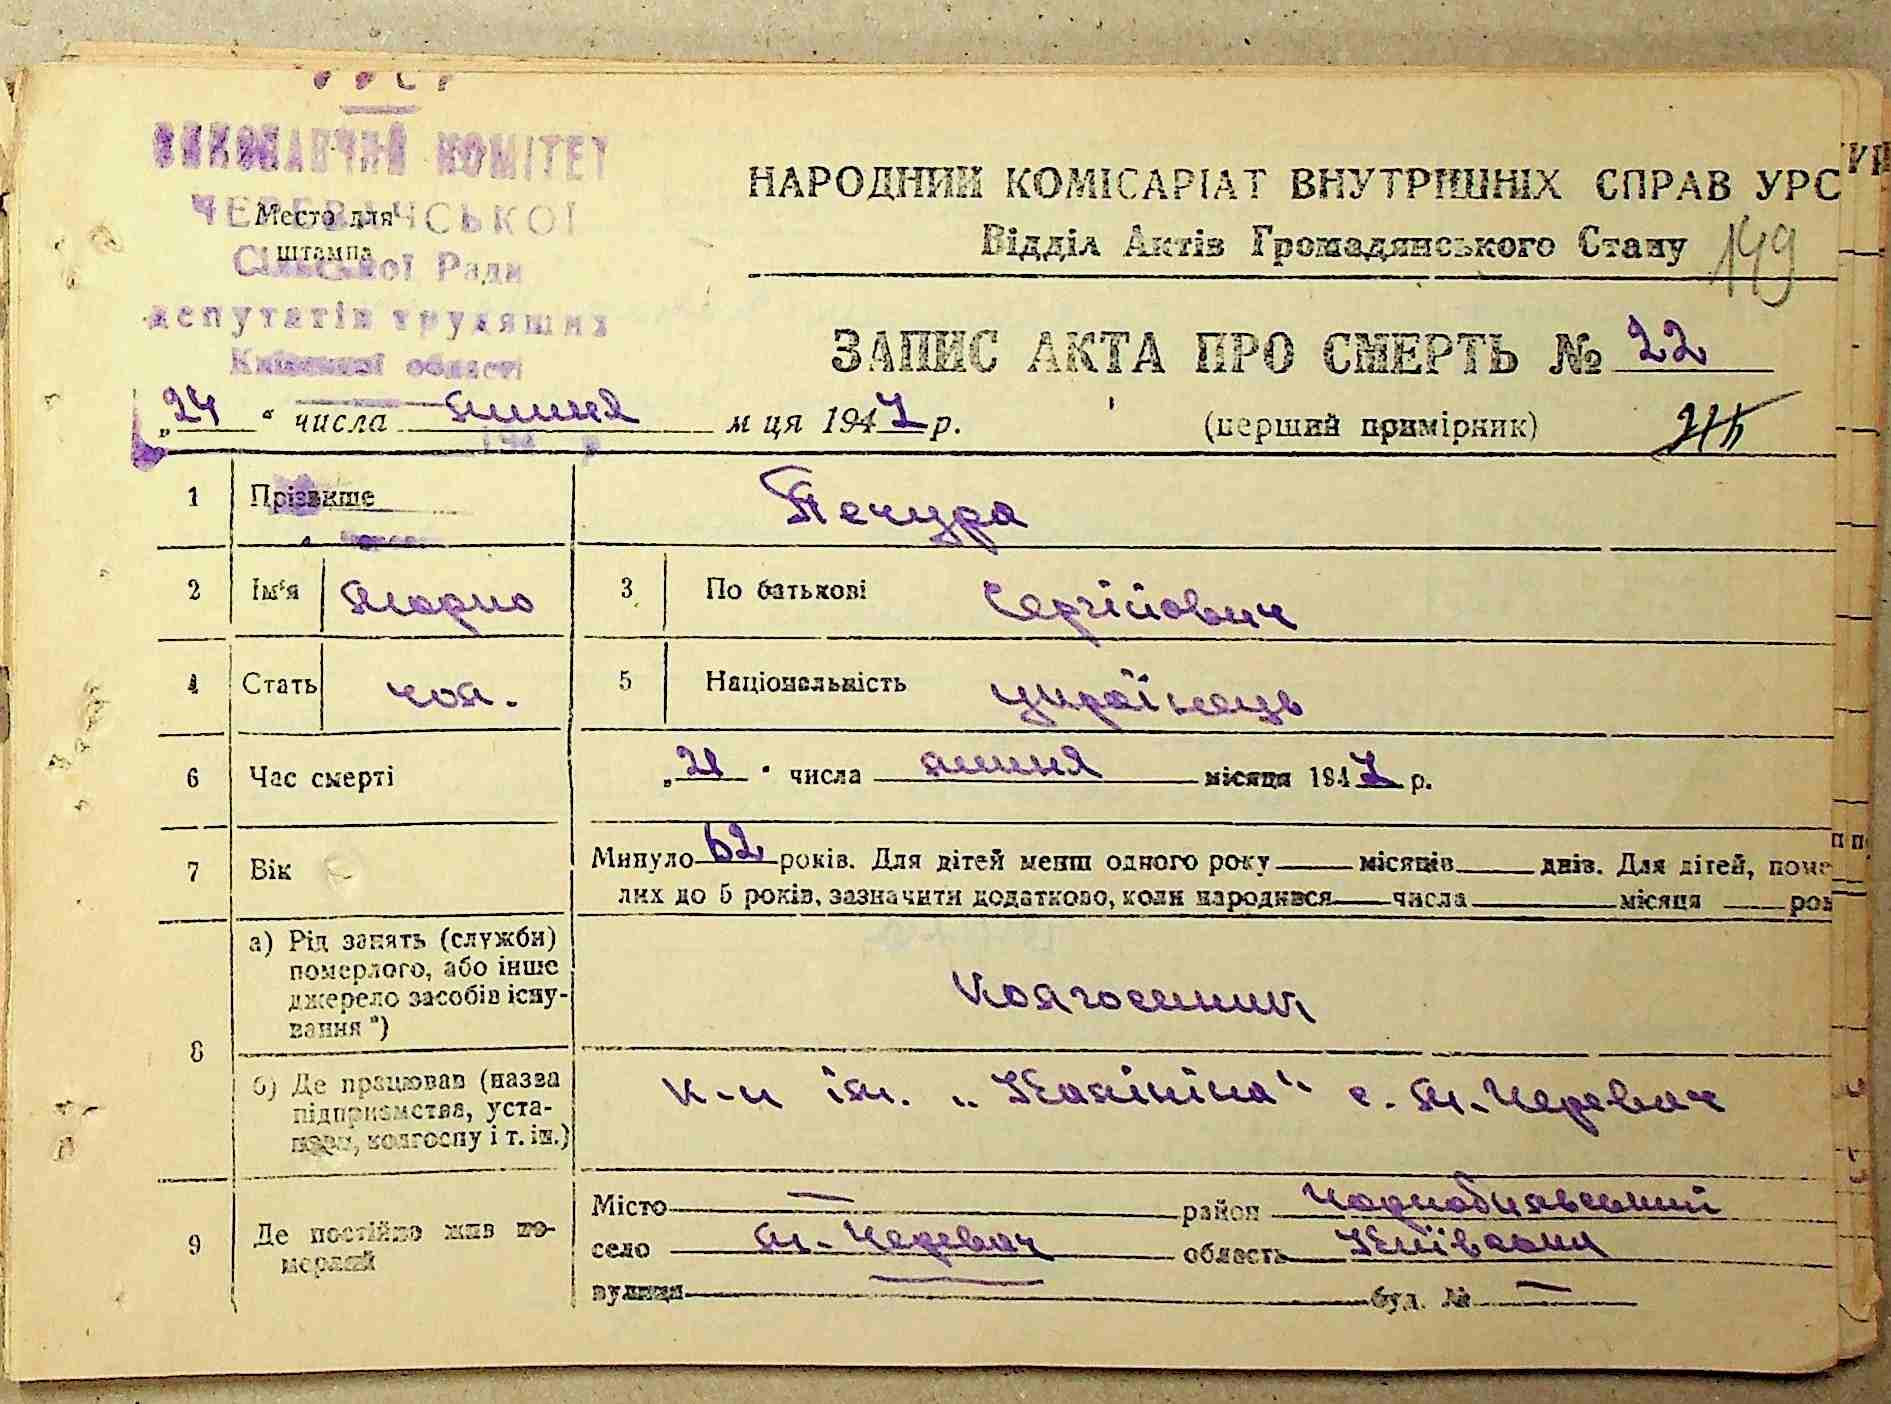 УРСР
ВИКОНАВЧИЙ КОМІТЕТ
ЧЕРЕВАЧСЬКОЇ
Сільської Ради
депутатів трудящих
Київської області
Место для
штампа
НАРОДНИЙ КОМІСАРІАТ ВНУТРІШНІХ СПРАВ УРС
Відділ Актів Громадянського Стану
149
ЗАПИС АКТА ПРО СМЕРТЬ № 22
„24“ числа липня м ця 1947 р. (перший примірник)
1 Прізвище Печура
2 Ім'я Марко 3 По батькові Сергійович
4 Стать чол. 5 Національність українець
6 Час смерті „21“ числа липня місяця 1947 р.
7 Вік Минуло 62 років. Для дітей менш одного року місяців днів. Для дітей, поме
лих до 5 років, зазначити додатково, коли народився числа місяця рок
8 а) Рід занять (служби)
померлого, або інше
джерело засобів існу-
вання *)
Колгоспник
б) Де працював (назва
підприємства, уста-
нови, колгоспу і т. ін.)
к-п ім. „Калініна“ с. М.-Черевач
9 Де постійно жив по-
мерлий
Місто — район Чорнобильський
село М.-Черевач область Київська
вулиця — буд. № —